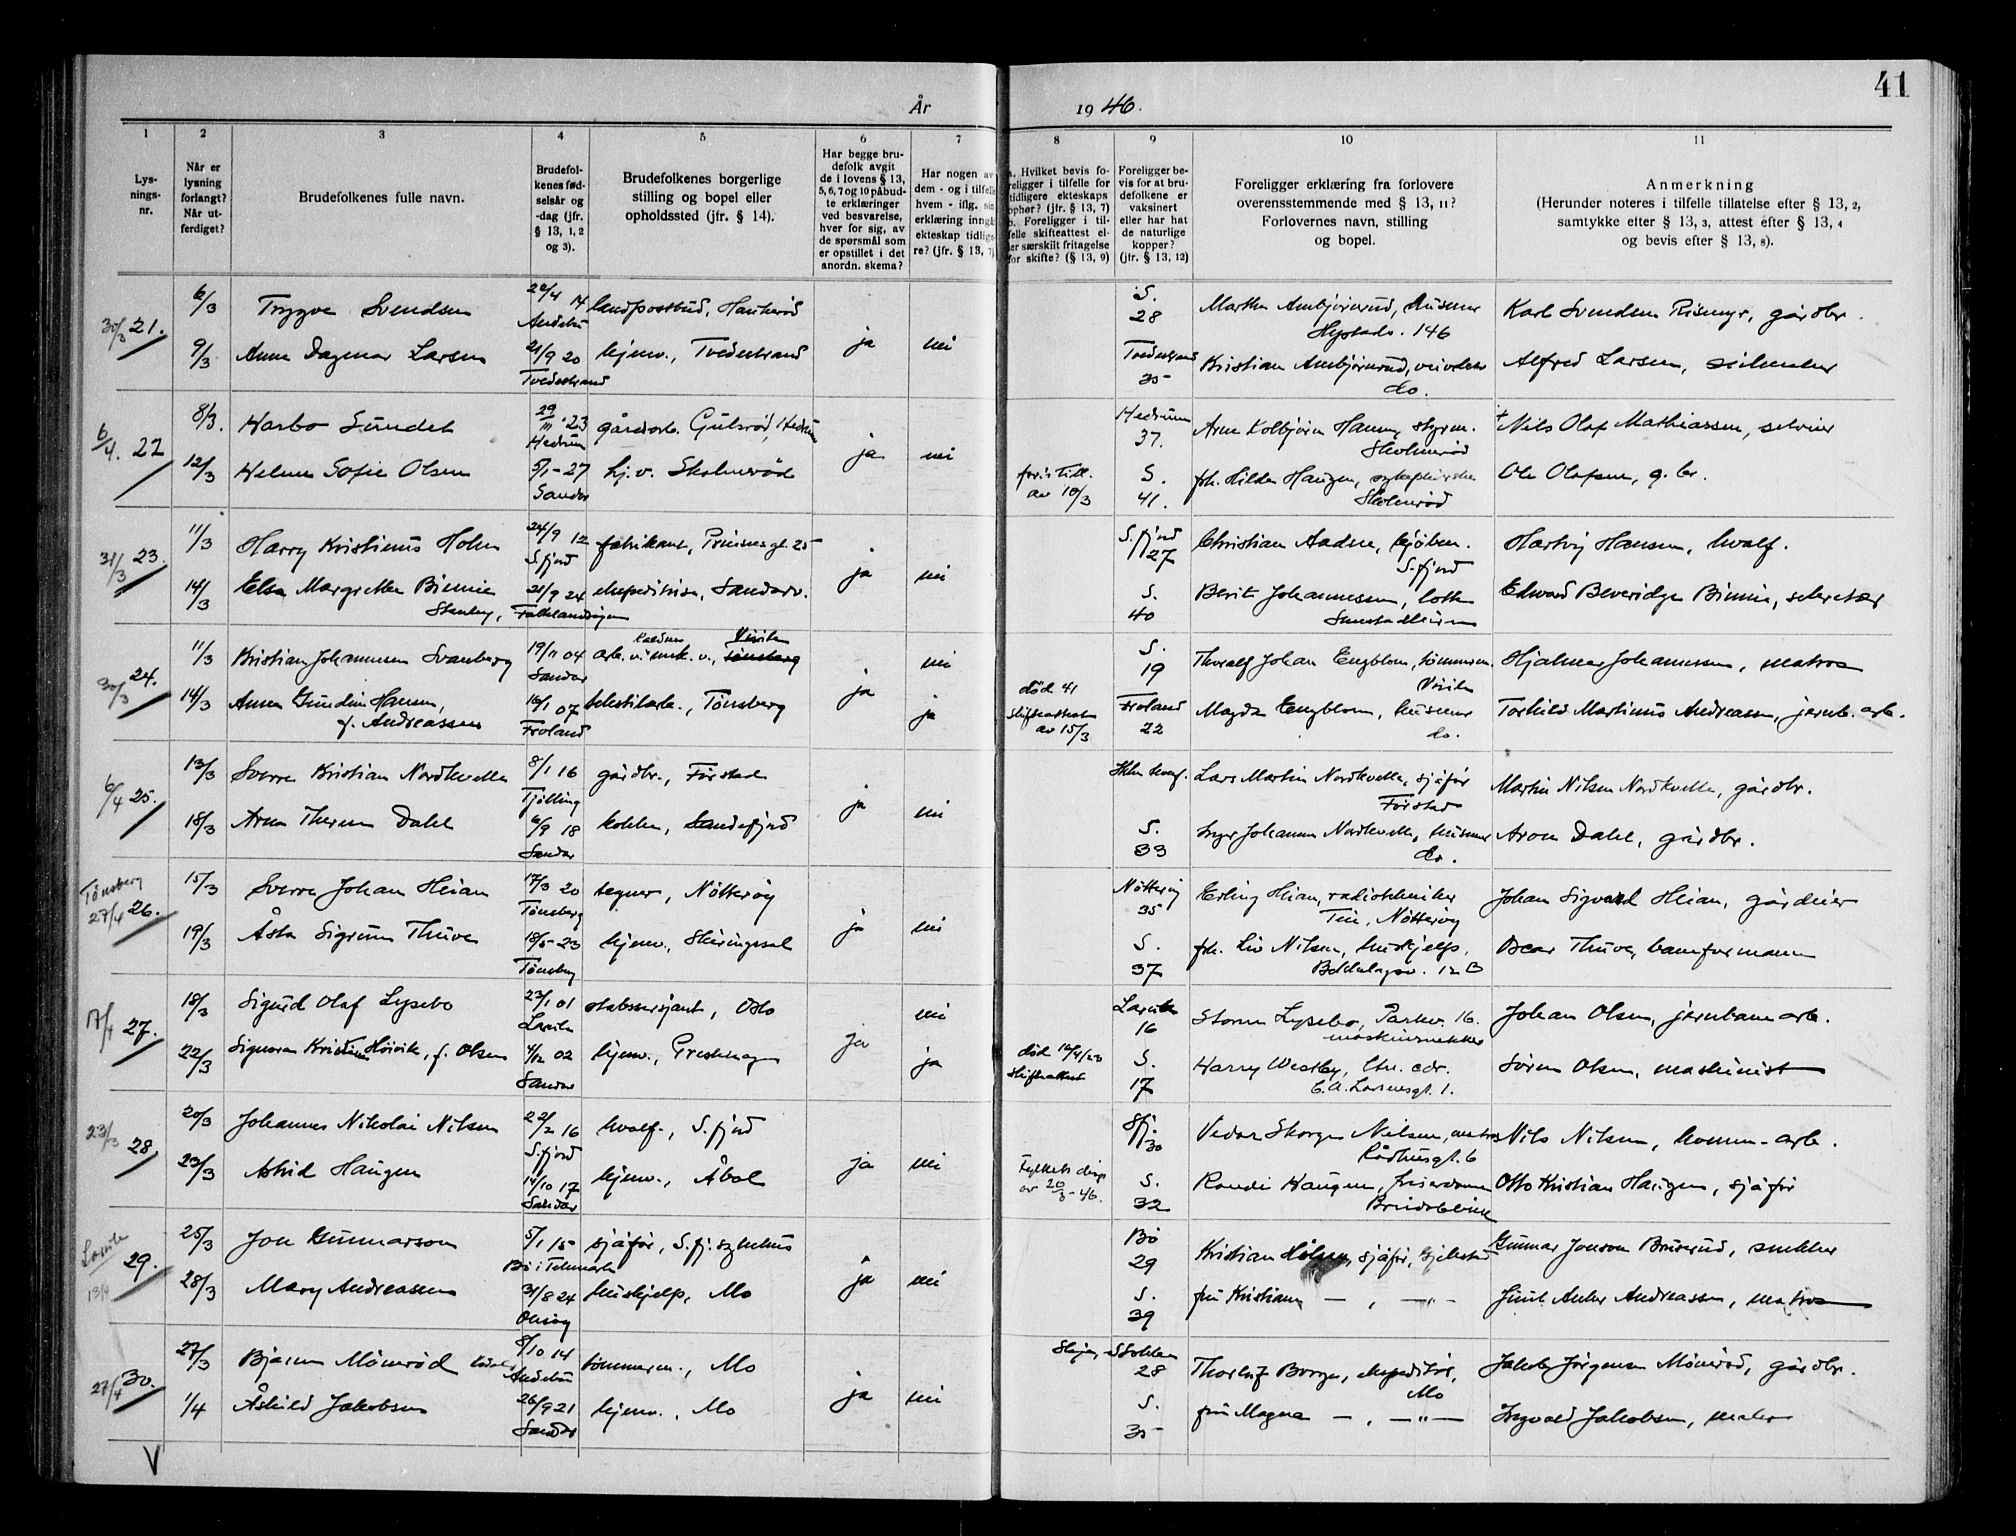 41
År 1946.
1 2 3 4 5 6 7 8 9 10 11
Lys-
nings-
nr.
Når er
lysning
forlangt?
Når ut-
ferdiget?
Brudefolkenes fulle navn.
Brudefol-
kenes fød-
selsår og
-dag (jfr.
§ 13, 1, 2
og 3).
Brudefolkenes borgerlige
stilling og bopel eller
opholdssted (jfr. § 14).
Har begge bru-
defolk avgit
de i lovens § 13,
5, 6, 7 og 10 påbud-
te erklæringer
ved besvarelse,
hver for sig, av
de spørsmål som
er opstillet i det
anordn. skema?
Har nogen av
dem - og i tilfelle
hvem - iflg. sin
erklæring inngå
ekteskap tidlige
re? (jfr. § 13, 7)
a. Hvilket bevis fo-
religger i tilfelle for
tidligere ekteskaps
ophør? (jfr. § 13, 7)
b. Foreligger i til-
felle skifteattest el-
ler særskilt fritagelse
for skifte? (§ 13, 9)
Foreligger be-
vis for at bru-
defolkene er
vaksinert
eller har hat
de naturlige
kopper?
(jfr. § 13, 12)
Foreligger erklæring fra forlovere
overensstemmende med § 13, 11?
Forlovernes navn, stilling
og bopel.
Anmerkning
(Herunder noteres i tilfelle tillatelse efter § 13, 2,
samtykke efter § 13, 3, attest efter § 13, 4
og bevis efter § 13, 8).
30/3 21. 6/3 Trygve Svendsen 14 landpostbud, S. 28 146
Andebu
9/3 Anna Dagmar Larsen 21/9 20 hjemv., Tvedestrand ja nei Tvedestrand 35 Alfred Larsen,
Tvedestrand do.
6/4. 22 8/3. Harbo Sundet 29/11 '23 gårdsarb. Hedrum Hedrum 37. Nils Olaf Mathiassen,
Hedrum
12/3 Helene Sofie Olsen 5/1 - 27 hj.v. ja nei av 10/3 S. 41. frk. Hilda Haugen, Ole Olafsen, g.br.
Sandar
31/3 23. 11/3 Harry Kristinus Holm 24/9 12 fabrikarb., Prinsensgt. 25 S.fjord 27 Christian Aadne, S.fjord Hartvig Hansen, hvalf.
S.fjord
14/3 Elsa Margrethe Binnie 21/9 24 ekspeditrise, ja nei S. 40 Berit Johannesen, Edward Beveridge Binnie, sekretær
Stanley, Falklandsøyene
30/3 24. 11/3 Kristian Johannesen Svanberg 19/11 04 arb. v. mek. v., Tønsberg nei S. 19 Thoralf Johan Engblom, tømmerm. Hjalmar Johannessen, matros
Sandar
14/3 Anna Gundine Hansen, 16/1 07 Tønsberg ja ja død 41 Froland 22 Magda Engblom, Torkild Martinius Andreassen, jernb. arb.
f. Andreassen Froland skifteattest av 15/3 do.
6/4 25. 13/3 Sverre Kristian Nordkvelle 8/1 16 gårdbr., Førstad Lars Martin Nordkvelle, sjåfør Førstad Martin Nilsen Nordkvelle, gårdbr.
Tjølling
18/3 Arna Therese Dahl 6/9 18 Sandefjord ja nei S. 33 Inger Johanne Nordkvelle, do. Aron Dahl, gårdbr.
Sandar
Tønsberg
27/4 26. 15/3 Sverre Johan Heian 17/3 20 tegner, Nøtterøy Nøtterøy 35 Erling Heian, radiotekniker Johan Sigvald Heian, gårdeier
Tønsberg Nøtterøy
19/3 Åsta Sigrun Thuve 18/5 - 23 hjemv., Skiringssal ja nei S. 37 frk. Liv Nilsen, hushjelp, Oscar Thuve, baneformann
Tønsberg 12 B
17/4 27. 18/3 Sigurd Olaf Lysebo 23/1 01 stabssersjant, Oslo nei Larvik 16 Storm Lysebo, Parkv. 16. Johan Olsen, jernbanearb.
Larvik
22/3 Høivik, f. Olsen 4/12 02 hjemv., ja ja død skifteattest S. 17 Harry Westby, Søren Olsen, maskinist
Sandar
23/3 28 20/3 Johannes Nikolai Nilsen 22/2 16 hvalf., S.fjord 30 Vidar Skorge Nielsen, Rådhusgt. 6 Nils Nilsen, komm-arb.
S.fjord
23/3 Astrid Haugen 14/10 17 hjemv., Åbol ja nei Fylkets disp. av 20/3-46. S. 32 Randi Haugen, Otto Kristian Haugen, sjåfør
Sandar
Larvik
13/4 29. 25/3 Jon Gunnarson 5/1 15 sjåfør, S.fj. sykehus Bø 29 Kristian sjåfør, Gjekstad Gunnar Jonson Bruserud, snekker
Bø i Telemark
28/3 Mary Andreassen 31/8 24 hushjelp, Mo ja nei S. 39 fru Kristiane — , —"— Andreassen, matros
27/4 30. 27/3 Bjarne Mönnröd Kodal 8/10 14 tømmerm., Mo 28 Thorleif Borge, ekspeditør, Mo Jakob Jørgensen Mönnröd, gårdbr.
Andebu
1/4 Åshild Jakobsen 26/9 21 hjemv., Mo ja nei S. 35 fru Magna — , —"— Ingvald Jakobsen, maler
Sandar
V